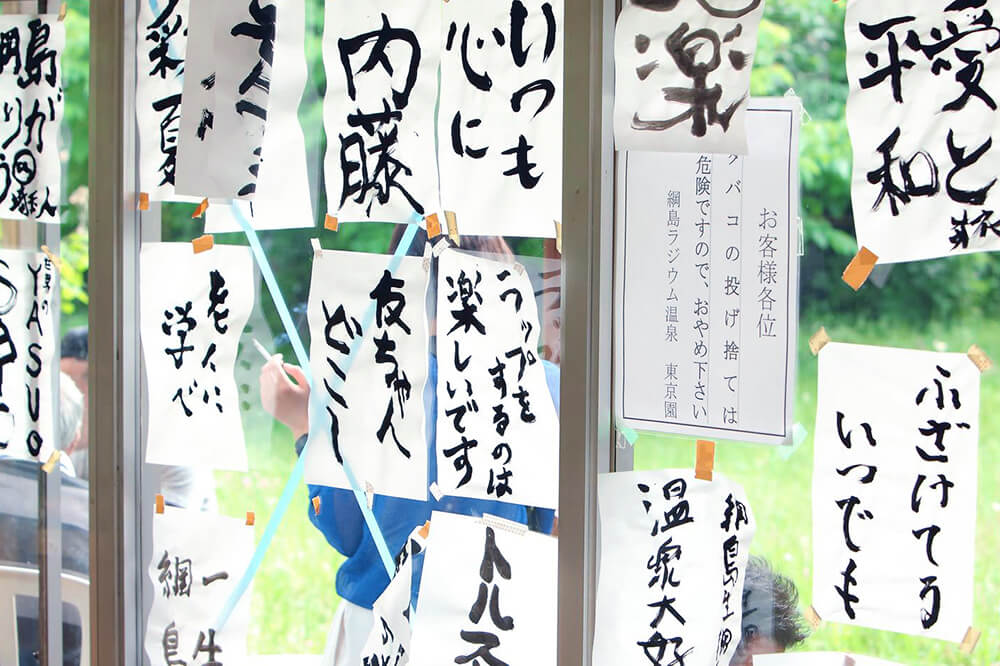 島が
彩夏
内藤
いつも
心に
楽
愛と
平和
お客様各位
タバコの投げ捨ては
危険ですので、おやめ下さい
綱島ラジウム温泉 東京園
YASUO
老人に
学べ
友ちゃん
どこ
ラップを
するのは
楽しいです
ふざけてる
いつでも
一生
綱島
トルス
綱島生
温泉大好